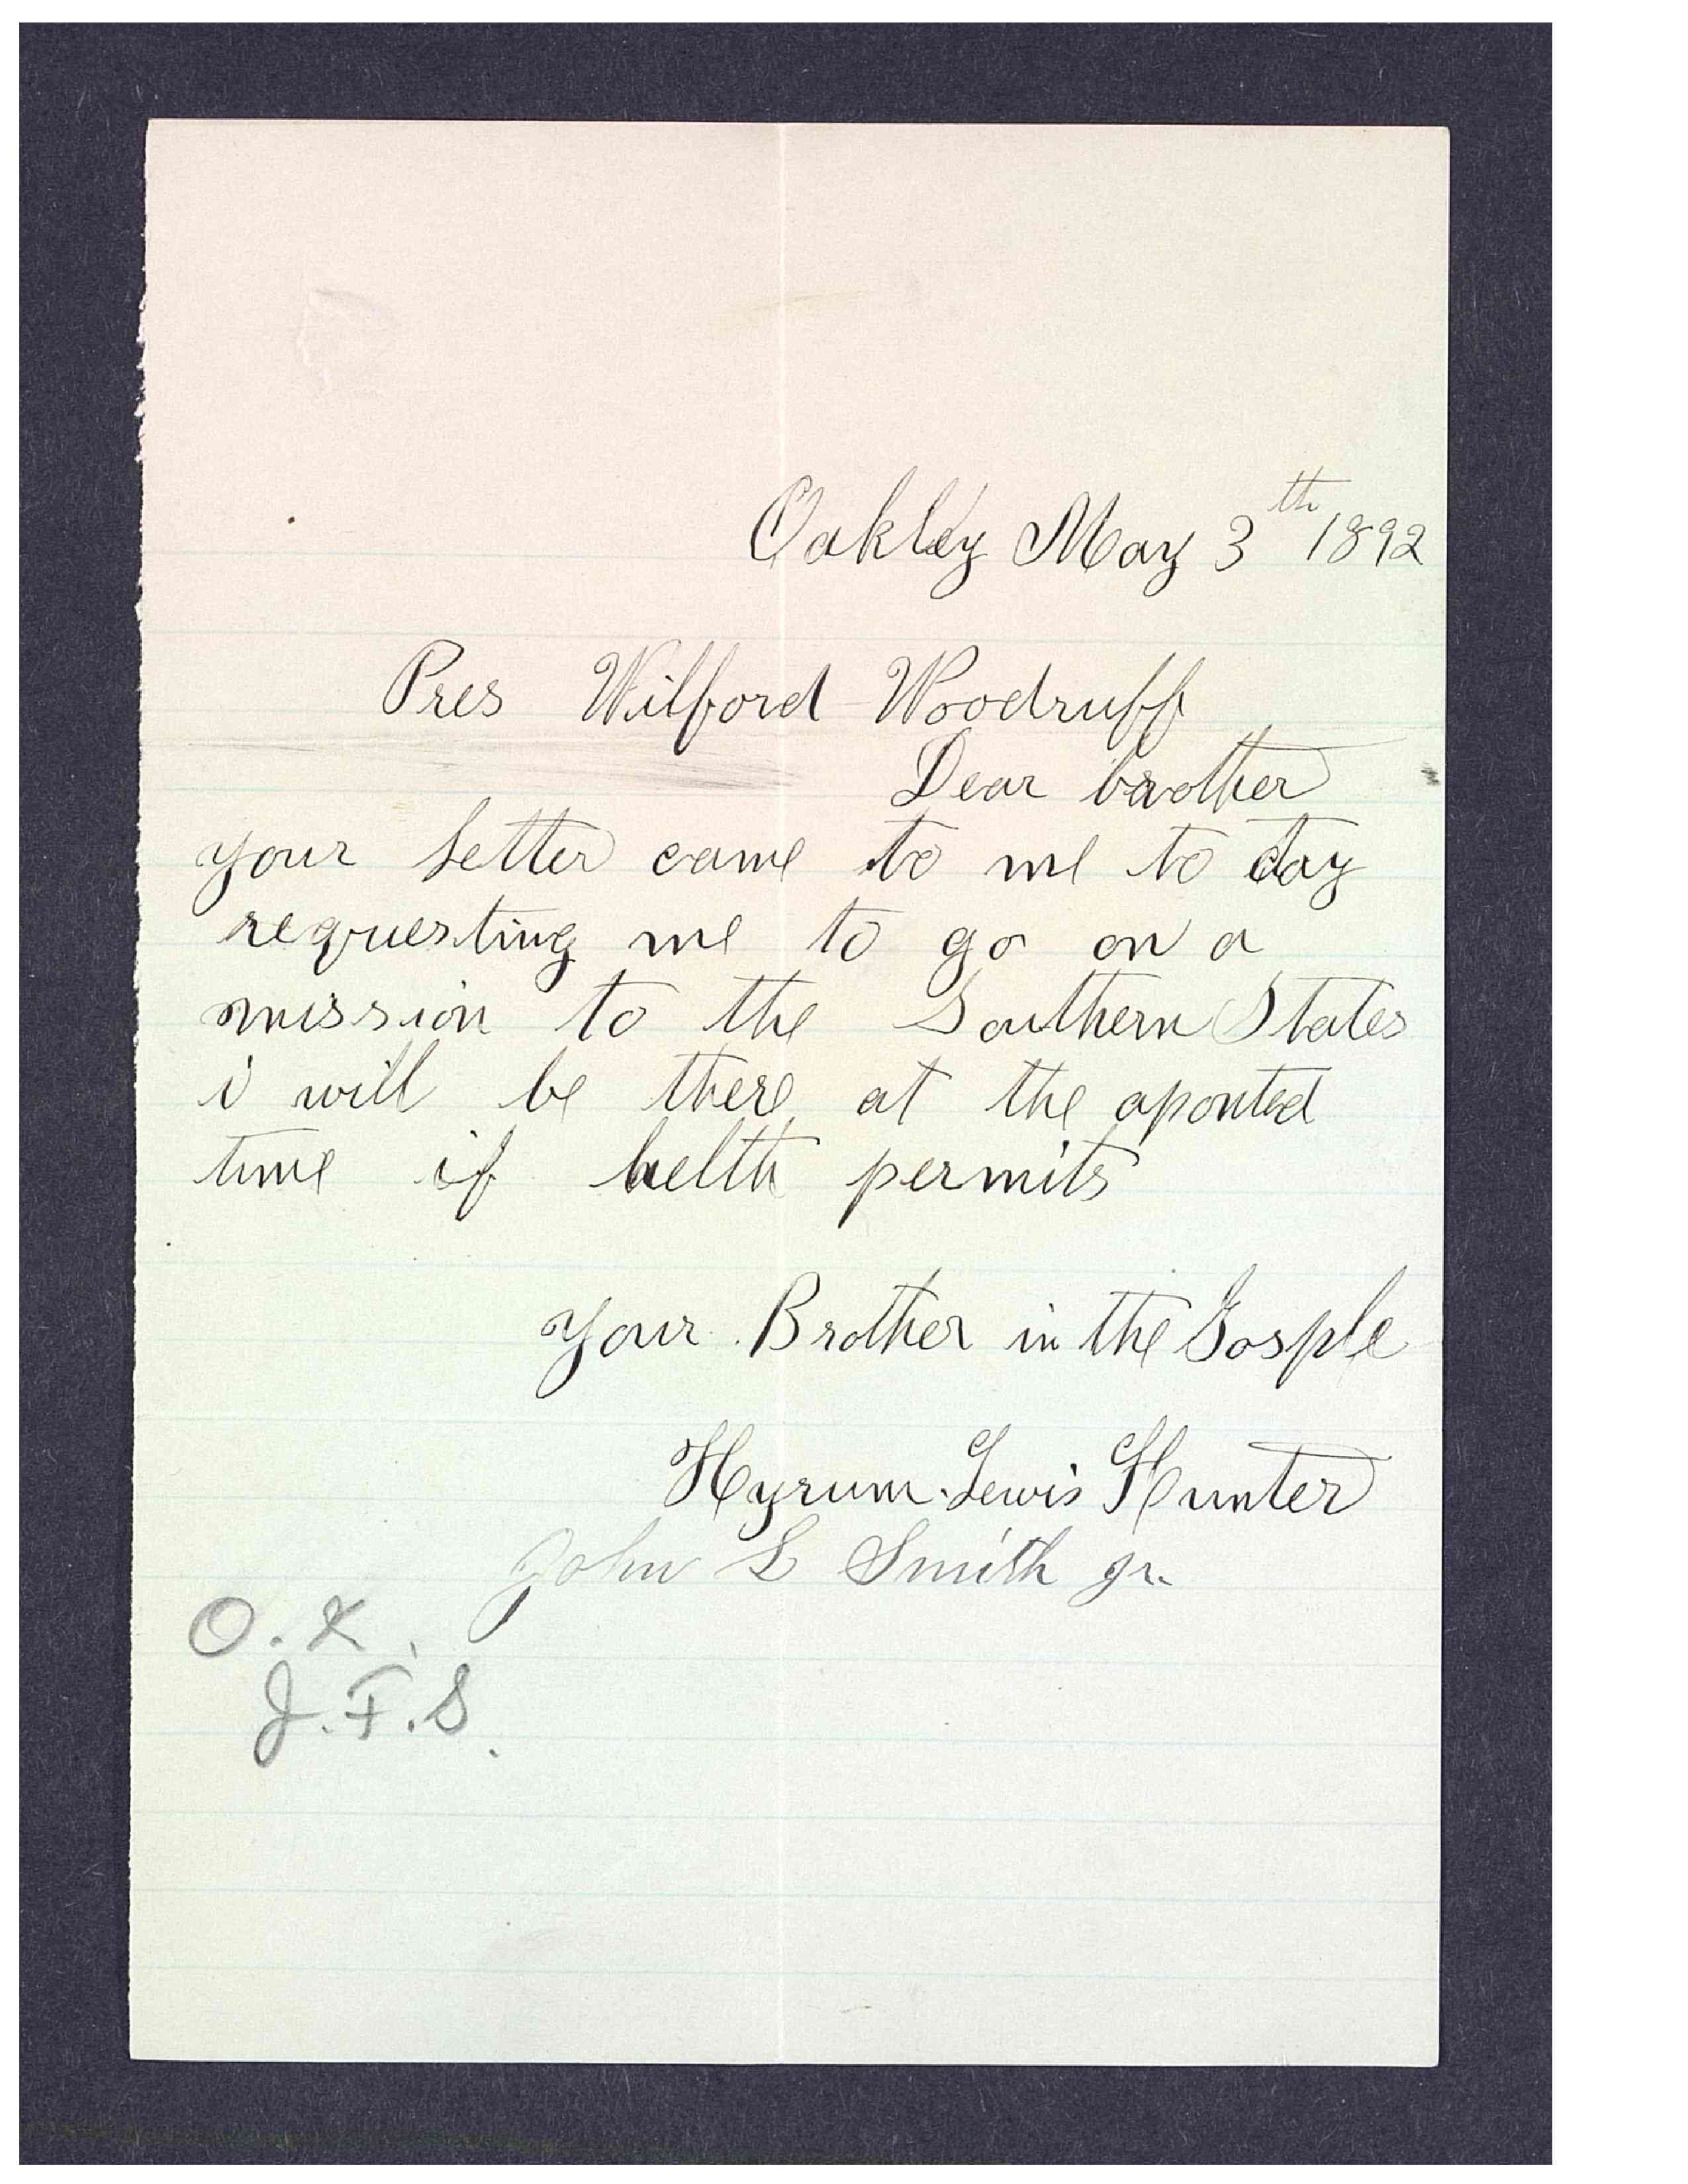 Oakley May 3th 1892
Pres Wilford Woodruff
Dear brother
your letter came to me to day
requesting me to go on a
mission to the Southern States
i will be there at the aponted
time if helth permits
your Brother in the Gosple
Hyrum Lewis Hunter
John L Smith jr.
O.K.
J.F.S.